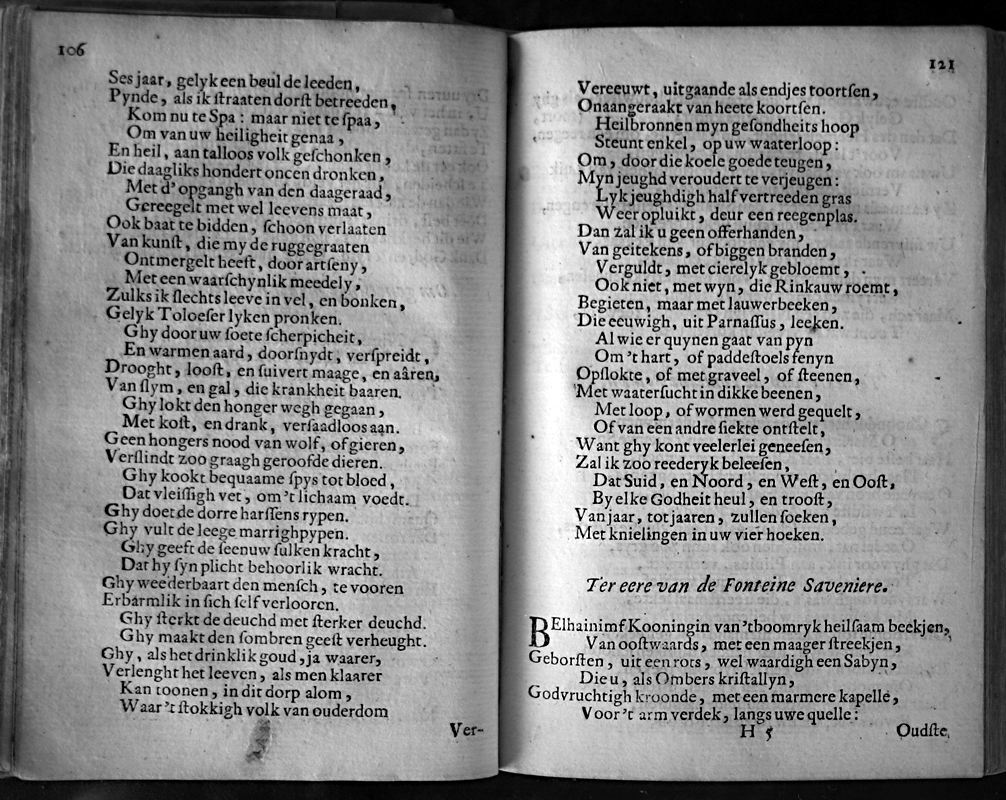 106
Ses jaar, gelyk een beul de leeden,
Pynde, als ik ſtraaten dorſt betreeden,
Kom nu te Spa: maar niet te ſpaa,
Om van uw heiligheit genaa,
En heil, aan talloos volk geſchonken,
Die daagliks hondert oncen dronken,
Met d'opgangh van den daageraad,
Gereegelt met wel leevens maat,
Ook baat te bidden, ſchoon verlaaten
Van kunſt, die my de ruggegraaten
Ontmergelt heeft, door artſeny,
Met een waarſchynlik meedely,
Zulks ik ſlechts leeve in vel, en bonken,
Gelyk Toloeſer lyken pronken.
Ghy door uw ſoete ſcherpicheit,
En warmen aard, doorſnydt, verſpreidt,
Drooght, looſt, en ſuivert maage, en aâren,
Van ſlym, en gal, die krankheit baaren.
Ghy lokt den honger wegh gegaan,
Met koſt, en drank, verſaadloos aan.
Geen hongers nood van wolf, of gieren,
Verſlindt zoo graagh geroofde dieren.
Ghy kookt bequaame ſpys tot bloed,
Dat vleiſſigh vet, om 't lichaam voedt.
Ghy doet de dorre harſſens rypen.
Ghy vult de leege marrighpypen.
Ghy geeft de ſeenuw ſulken kracht,
Dat hy ſyn plicht behoorlik wracht.
Ghy weederbaart den menſch, te vooren
Erbarmlik in ſich ſelf verlooren.
Ghy ſterkt de deuchd met ſterker deuchd.
Ghy maakt den ſombren geeſt verheught.
Ghy, als het drinklik goud, ja waarer,
Verlenght het leeven, als men klaarer
Kan toonen, in dit dorp alom,
Waar 't ſtokkigh volk van ouderdom
Ver-
121
Vereeuwt, uitgaande als endjes toortſen,
Onaangeraakt van heete koortſen.
Heilbronnen myn geſondheits hoop
Steunt enkel, op uw waaterloop:
Om, door die koele goede teugen,
Myn jeughd veroudert te verjeugen:
Lyk jeughdigh half vertreeden gras
Weer opluikt, deur een reegenplas.
Dan zal ik u geen offerhanden,
Van geitekens, of biggen branden,
Verguldt, met cierelyk gebloemt,
Ook niet, met wyn, die Rinkauw roemt,
Begieten, maar met lauwerbeeken,
Die eeuwigh, uit Parnaſſus, leeken.
Al wie er quynen gaat van pyn
Om 't hart, of paddeſtoels fenyn
Opſlokte, of met graveel, of ſteenen,
Met waaterſucht in dikke beenen,
Met loop, of wormen werd gequelt,
Of van een andre ſiekte ontſtelt,
Want ghy kont veelerlei geneeſen,
Zal ik zoo reederyk beleeſen,
Dat Suid, en Noord, en Weſt, en Ooſt,
By elke Godheit heul, en trooſt,
Van jaar, tot jaaren, zullen ſoeken,
Met knielingen in uw vier hoeken.
Ter eere van de Fonteine Saveniere.
BElhainimf Kooningin van 't boomryk heilſaam beekjen,
Van ooſtwaards, met een maager ſtreekjen,
Geborſten, uit een rots, wel waardigh een Sabyn,
Die u, als Ombers kriſtallyn,
Godvruchtigh kroonde, met een marmere kapelle,
Voor 't arm verdek, langs uwe quelle:
H 5
Oudſte